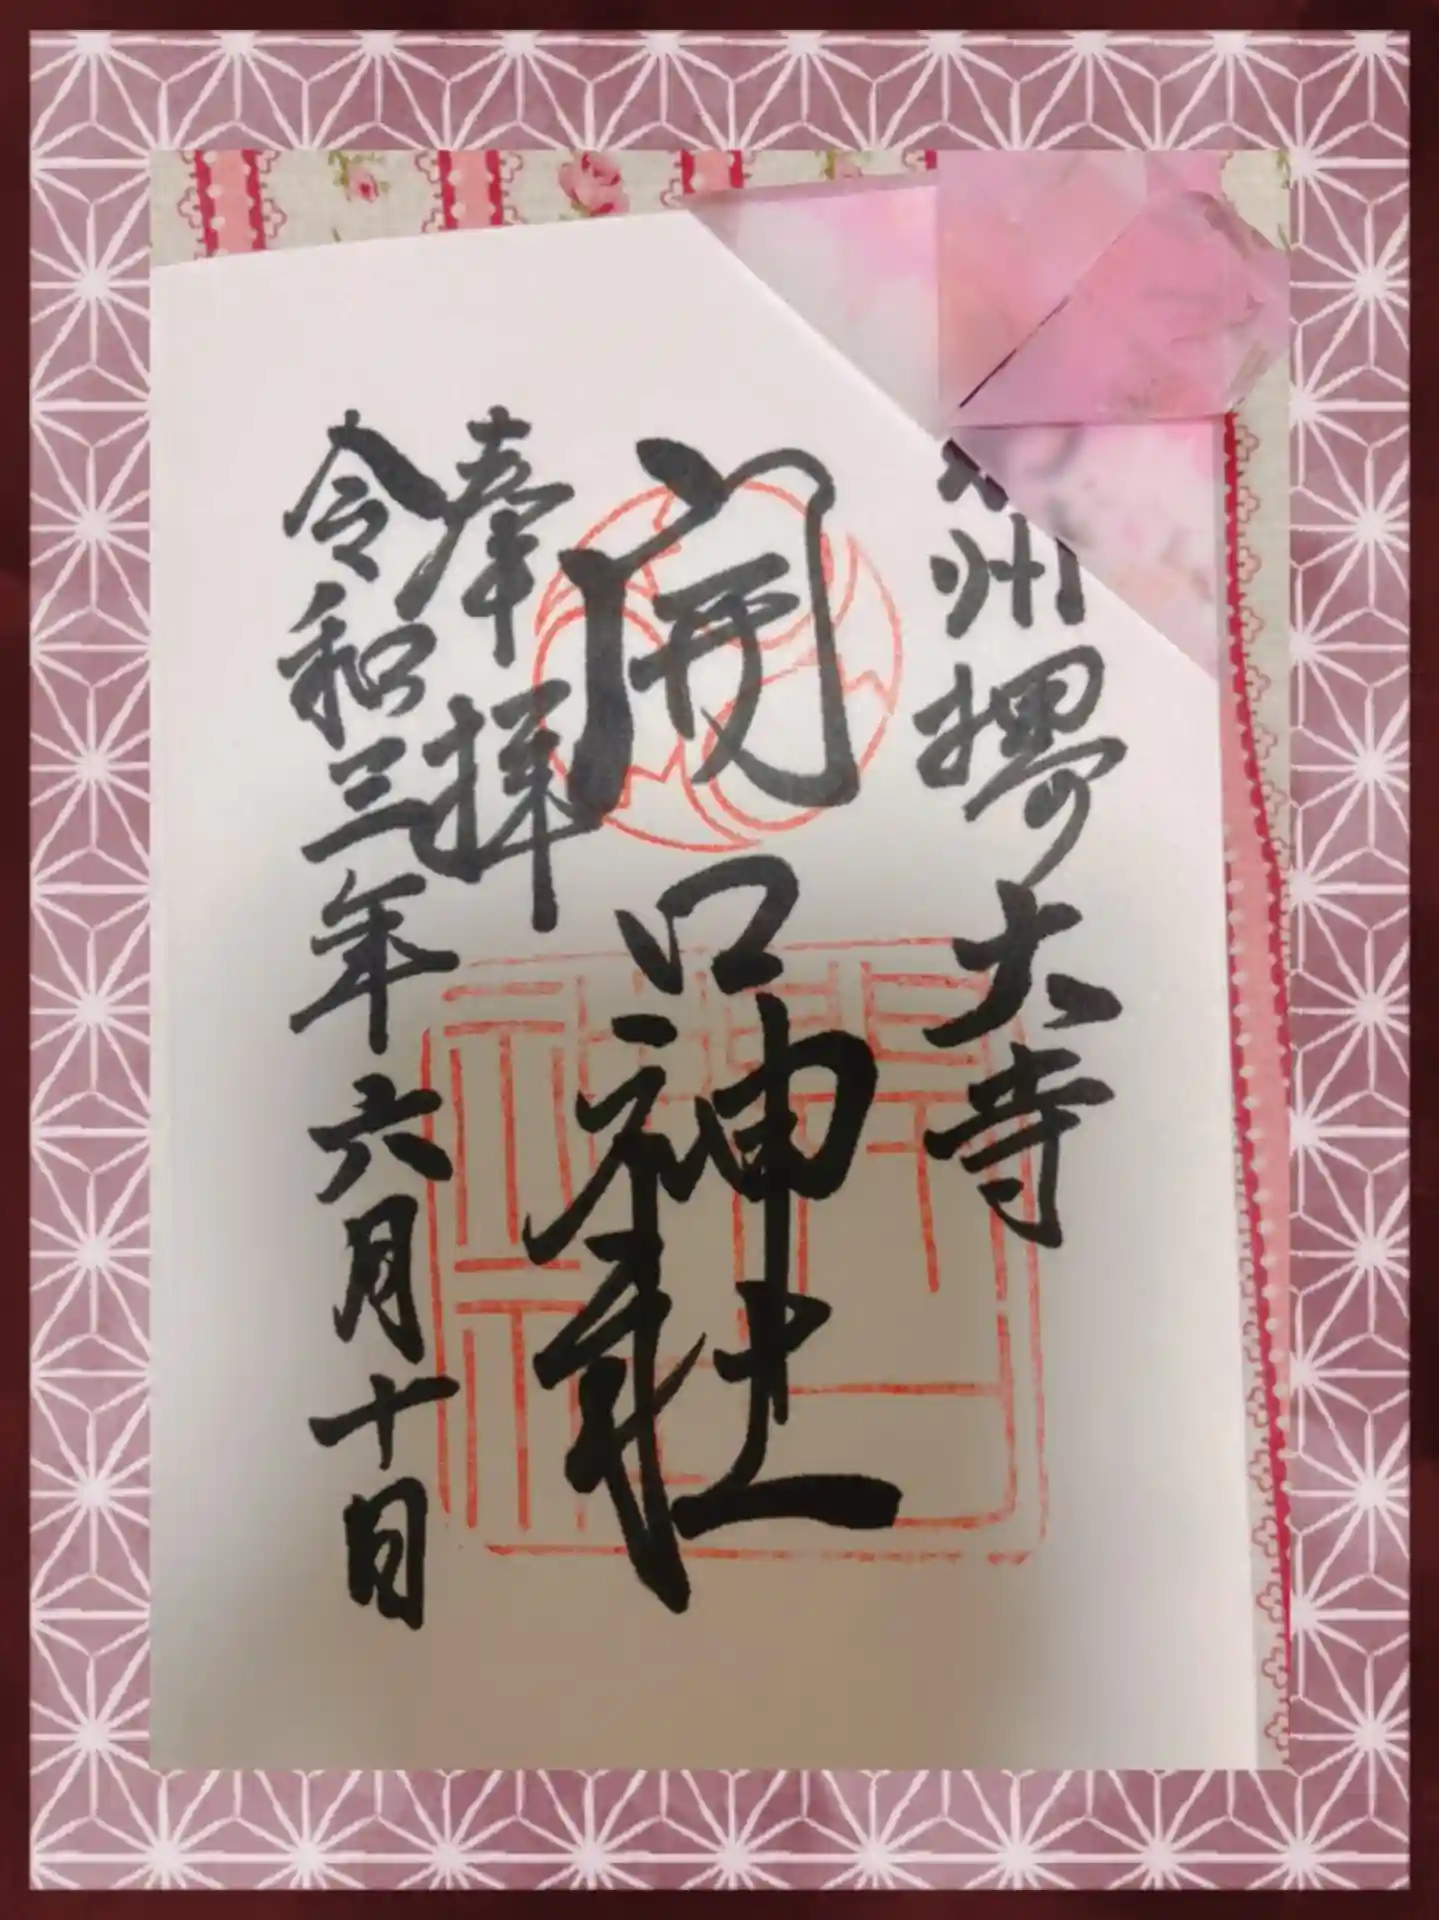 州堺大寺
開口神社
奉拝
令和三年六月十日